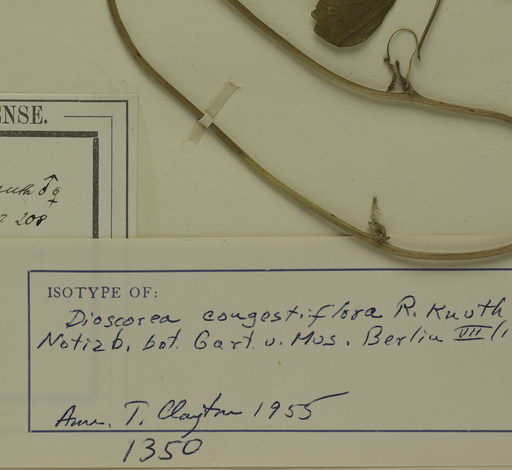 ENSE.
uth ♂ ♀
208
ISOTYPE OF:
Dioscorea congestiflora R. Knuth
Notizb. bot. Gart. u. Mus. Berlin VII (1
Ann. T. Clayton 1955
1350